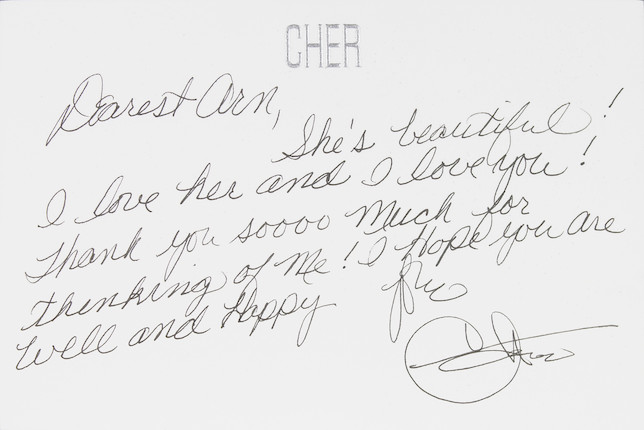 CHER
Dearest Arn,
She's beautiful!
I love her and I love you!
Thank you soooo Much for
thinking of Me! I Hope you are
Well and Happy